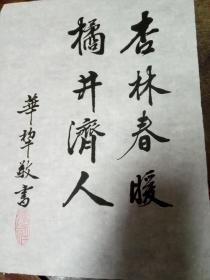 杏林春暖
橘井濟人
華犂敬書